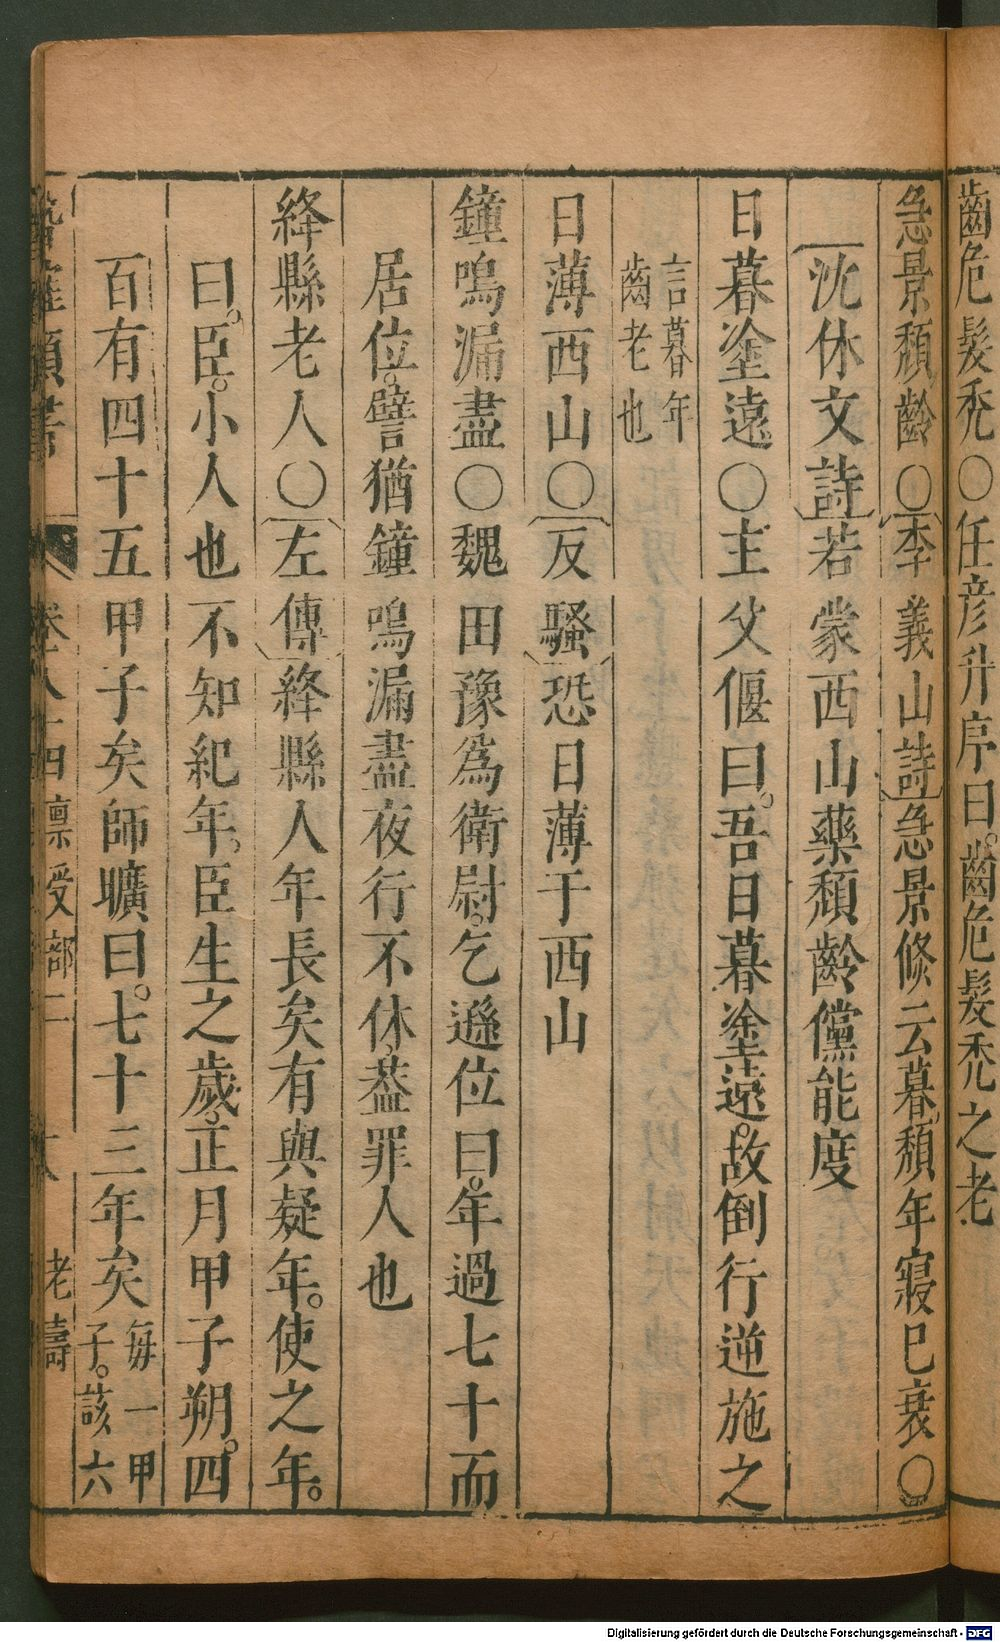 齒危髮秃〇任彦升序曰。齒危髮秃之老
急景頹齡〇李義山詩急景倐云暮頹年寖巳衰〇
沈休文詩若蒙西山藥頹齡儻能度
日暮塗遠〇主父偃曰。吾日暮塗遠。故倒行逆施之
言暮年
齒老也
日薄西山〇反騷恐日薄于西山
鐘鳴漏盡〇魏田豫爲衛尉。乞遜位曰。年過七十而
居位。譬猶鐘鳴漏盡夜行不休。葢罪人也
絳縣老人〇左傳絳縣人年長矣有與疑年。使之年。
曰。臣。小人也不知紀年。臣生之歲。正月甲子朔。四
百有四十五甲子矣師曠曰。七十三年矣
每一甲
子。該六
類書
四稟受部二
老壽
Digitalisierung gefördert durch die Deutsche Forschungsgemeinschaft - DFG